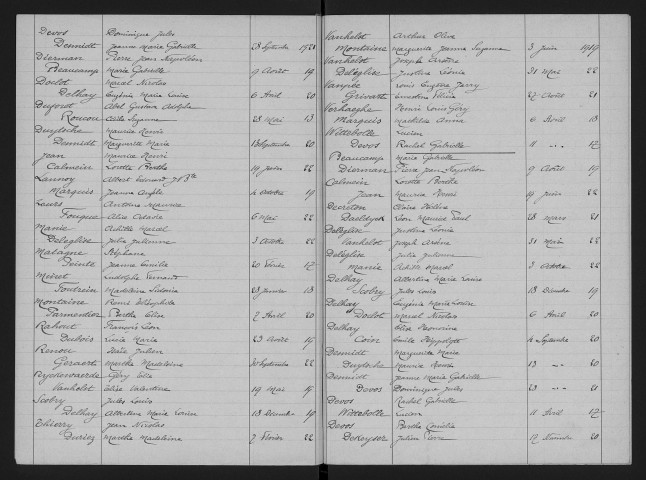 Devos Dominique Jules
Desmidt Jeanne Marie Gabrielle 28 Septembre 1921
Dierman Pierre Jean Napoléon
Beaucamp Marie Gabrielle 9 Août 19
Doclot Marcel Nicolas
Delhay Eugénie Marie Louise 6 Avril 20
Abel Gustave Adolphe
Roucou Cécile Suzanne 28 Mai 13
Duyloche Maurice Benoit
Desmidt Marguerite Marie 13 Septembre 20
Jean Maurice Henri
Calmein Loretta Berthe 14 Juin 22
Lannoy Albert Edouard J Bte
Marquis Jeanne Angèle 4 Octobre 19
Laurs Antoine Maurice
Fouque Alice Octavie 6 Mai 22
Manie Achille Marcel
Deleglise Julia Julienne 3 Octobre 22
Malagne Stéphane
Jeanne Camille 20 Février 17
Rudolphe Fernand
Madeleine Sidonie 28 Janvier 13
Montaine
Parmentier Berthe Elise 7 Avril 20
Rahout François Léon
Dubois Lucie Marie 23 Août 19
Renou Julien
Geraert Marthe Madeleine 30 Septembre 22
Ryckewaerde Géry Elie
Vanhelot Elise Valentine 19 Mai 19
Scobry Jules Louis
Delhay Albertine Marie Louise 18 Décembre 19
Thierry Jean Nicolas
Duriez Marthe Madeleine 7 Février 22
Vanhelot Arthur Olive
Montaine Marguerite Jeanne Suzanne 3 Juin 1919
Vanhelot Joseph
Deléglise Justine Léonie 31 Mai 22
Louis Eugène
Grivart Ernestine 27 Août 21
Verhaeghe Henri Louis Géry
Marquis Mathilde Anna 6 Avril 18
Wittebolle Lucien
Devos Rachel Gabrielle 11 -"- 17
Beaucamp Marie Gabrielle
Dierman Pierre Jean Napoléon 9 Août 19
Calmein Loretta Berthe
Jean Maurice Henri 14 Juin 22
Decreton Claire Hélène
Léon Maurice Paul 28 Mars 21
Deléglise Justine Léonie
Vanhelot Joseph 31 Mai 22
Deléglise Julia Julienne
Manie Achille Marcel 3 Octobre 22
Delhay Albertine Marie Louise
Scobry Jules Louis 18 Décembre 19
Delhay Eugénie Marie Louise
Doclot Marcel Nicolas 6 Avril 20
Delhay Elise
Coin Emile Hippolyte 4 Septembre 20
Desmidt Marguerite Marie
Duyloche Maurice Benoit 13 -"- 20
Desmidt Jeanne Marie Gabrielle
Devos Dominique Jules 28 -"- 21
Devos Rachel Gabrielle
Wittebolle Lucien 11 Avril 17
Devos Berthe
Dekeyser Julien 17 Novembre 20